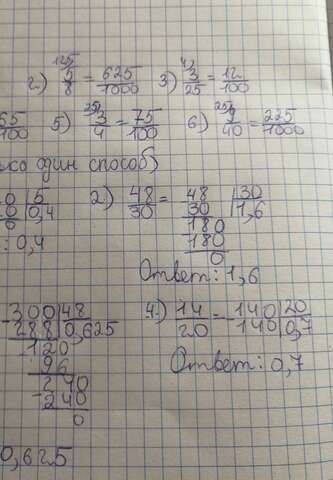 2) 125 5/8 = 625/1000 3) 4) 3/25 = 12/100
65/100 5) 25) 3/4 = 75/100 6) 25) 9/40 = 225/1000
ко один способ)
0 | 5 2) 48/30 = 48 | 30
0 | 0,4 30 | 1,6
0 180
: 0,4 180
0
Ответ: 1,6
-300 | 48 4.) 14/20 = -140 | 20
288 | 0,625 140 | 0,7
120 0
96 Ответ: 0,7
240
-240
0
0,625